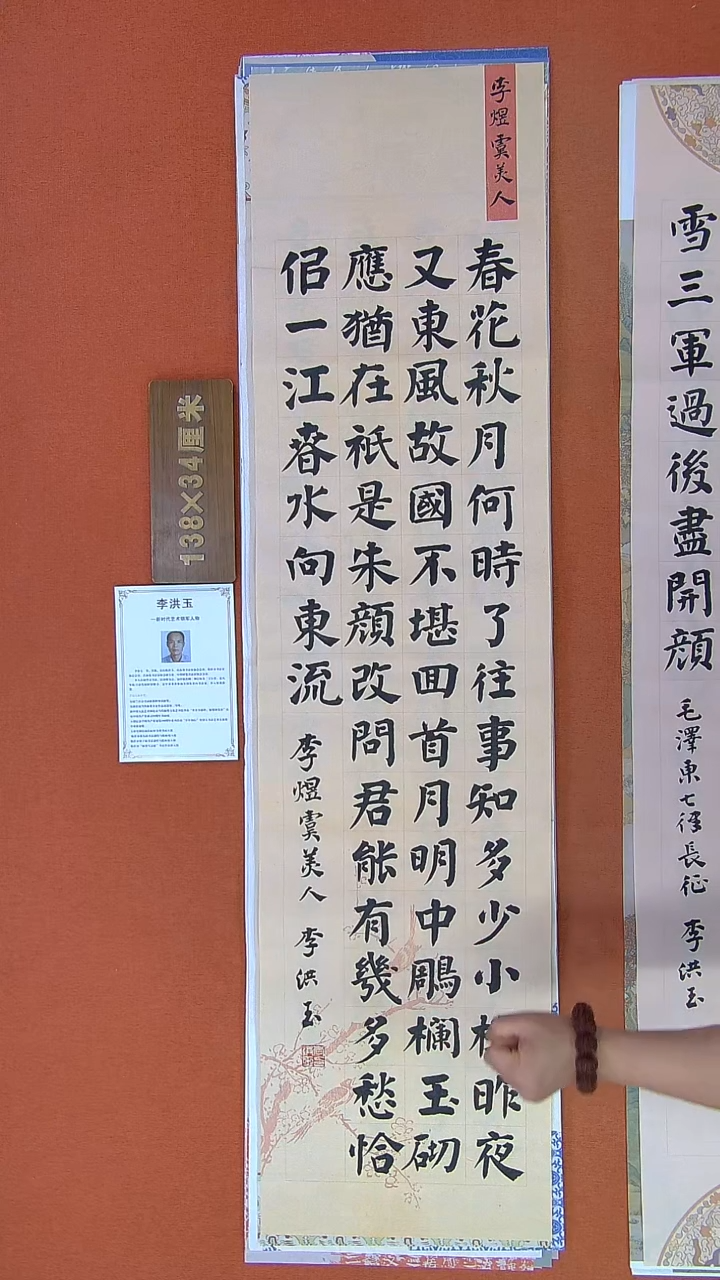 李煜虞美人
春花秋月何時了往事知多少小昨夜
又東風故國不堪回首月明中鵰欄玉砌
應猶在祇是朱顔改問君能有幾多愁恰
佀一江春水向東流
李煜虞美人 李洪玉
138×34厘米
李洪玉
—新时代艺术领军人物
雪三軍過後盡開顔
毛澤東七律長征 李洪玉